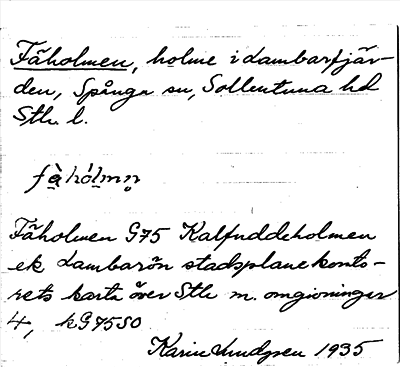 Fäholmen, holme i Lambarfjär-
den, Spånga sn, Sollentuna hd
Sthl. l.
fä̀hól̥mn̥
Fäholmen G75 Kalfuddeholmen
ek Lambarön stadsplanekonto-
rets karta över Sthlm m. omgivningar
4, kG75SO
Karin Lundgren 1935